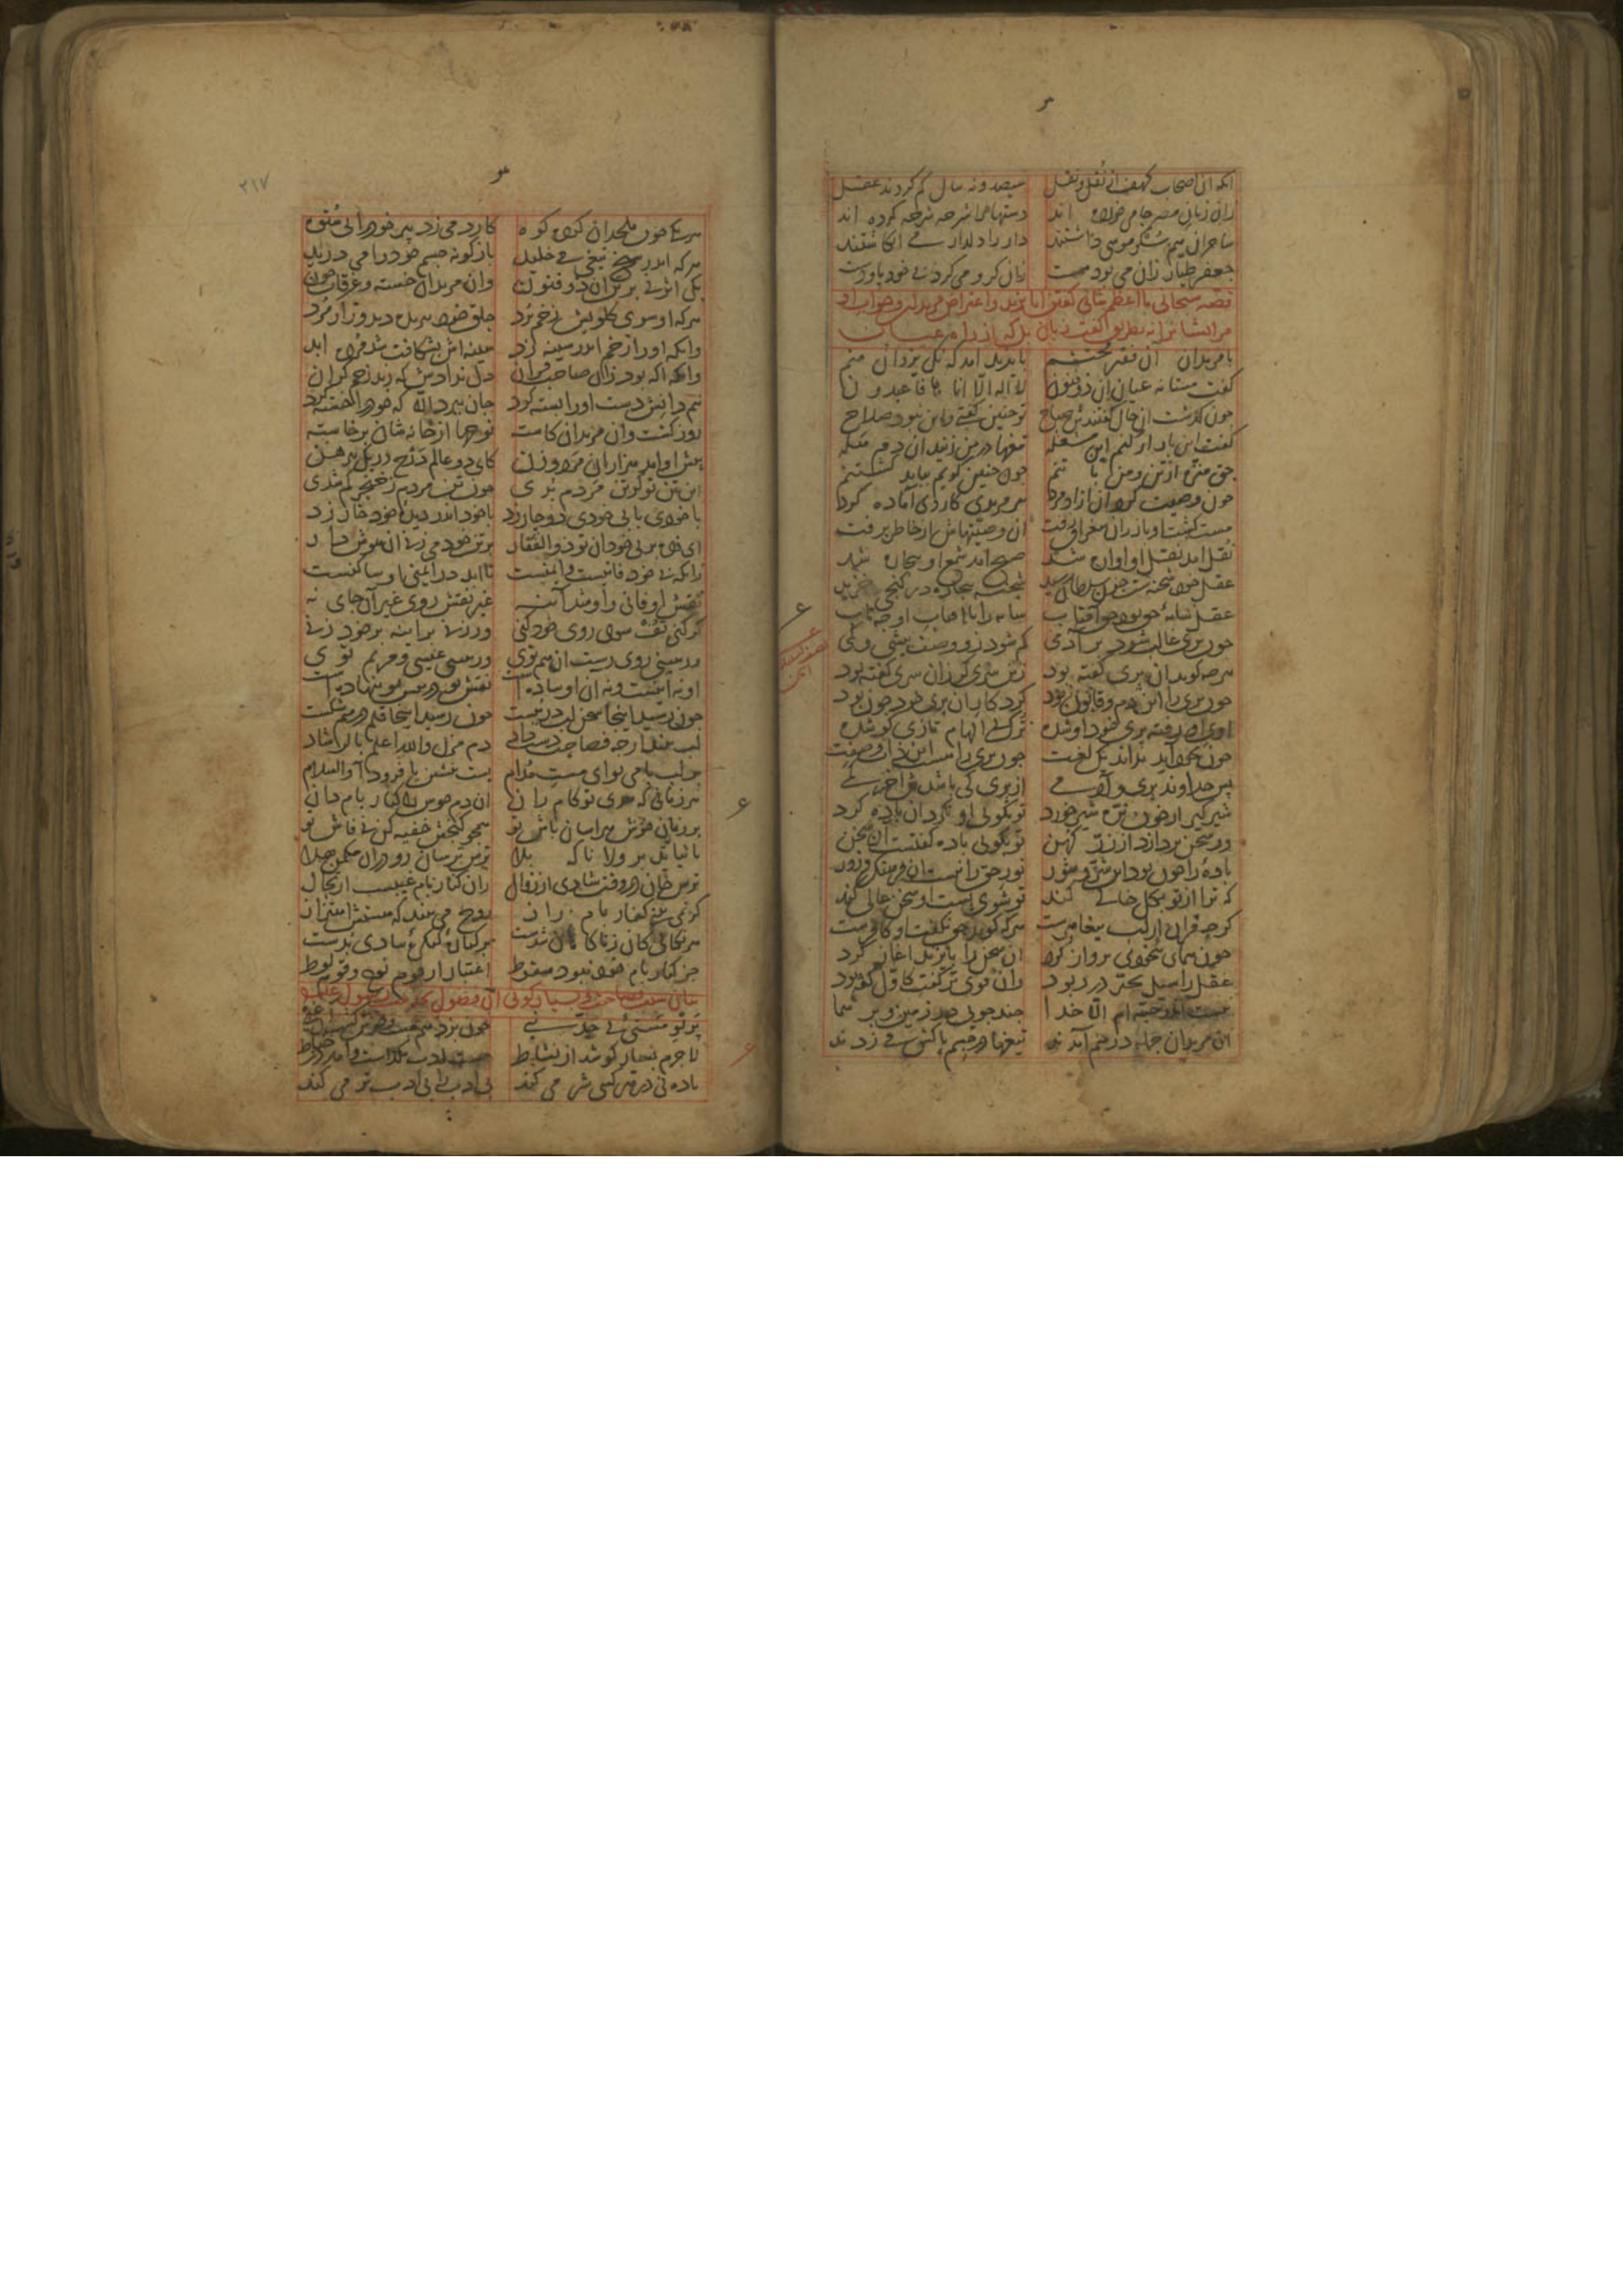 انکه ان اصحاب کهف از نُقل و نقل سیصد و نه سال کم کردند عقل
زان زنان مصر جامی خورده اند دستها را شرحه شرحه کرده اند
ساحران هم سُکر موسی داشتند دار را دلدار می انکاشتند
جعفر طیار زان می بود مست زان کرو می کرد بی خود پا و دست
قصه سبحانی ما اعظم شانی کفتن ابایزید و اعتراض مریدان و جواب او
مر ایشان را نه بطریق کفت زبان بلکه از راه عیان
با مریدان آن فقیر محتشم بایزید آمد که نک یزدان منم
کفت مستانه عیان ان ذوفنون لا اله الا انا ها فاعبدون
چون کذشت ان حال کفتندش صباح تو چنین کفتی و این نبود صلاح
کفت این بار ار کنم این مشغله تیغها در من زنید ان دم هله
حق منزه از تن و من با تنم چون چنین کویم بباید کشتنم
چون وصیت کرد ان ازادمرد هر مریدی کاردی آماده کرد
مست کشت او باز ازان سغراق رفت ان وصیتهاش از خاطر برفت
نُقل امد عقل او اواره شد صبح آمد شمع او بیچاره شد
عقل چون شحنه ست چون سلطان رسید شحنه بیچاره در کنجی خزید
عقل سایه حق بود حق افتاب سایه را با افتاب او چه تاب
چون پری غالب شود بر آدمی کم شود زو وصف بیشی و کمی
هرچه کوید ان پری کفته بود زین سری کر زان سری کفته بود
چون پری را این دم و قانون بود کردکار ان پری خود چون بود
اوی او رفته پری خود او شده ترک بی الهام تازی کو شده
چون بخود آید نداند یک لغت چون پری را هست این ذات و صفت
پس خداوند پری و آدمی از پری کی باشدش اخر کمی
شیرکیر ار خون نره شیر خورد تو بکویی او نکرد ان باده کرد
ور سخن پردازد از زرّ کهن تو بکویی باده کفتست ان سخن
باده را چون بود این شر و شور نور حق را نیست ان فرهنک و زور
که ترا از تو بکل خالی کند تو شوی پست او سخن عالی کند
کرچه قران از لب پیغامبرست هرکه کوید حق نکفت او کافرست
چون همای بیخودی پرواز کرد ان سخن را بایزید اغاز کرد
عقل را سیل تحیّر در ربود زان قوی تر کفت کاوّل کفته بود
نیست اندر جبه ام الا خدا چند جویی در زمین و بر سما
ان مریدان جمله در هم آمدند تیغها در جسم پاکش می زدند
۲۱۷
هر یکی چون ملحدان کرده کوه کارد می زد پیر خود را بی ستوه
هر که اندر شیخ تیغی می خلید بازکونه جسم خود را می درید
یک اثر نی بر تن ان ذو فنون وان مریدان خسته و غرقاب خون
هر که او سوی کلویش زخم برد حلق خود ببریده دید و زار مُرد
وانکه اورا زخم اندر سینه زد سینه اش بشکافت شد مرده ابد
وانکه اکه بود زان صاحب قران دل ندادش که زند زخم کران
نیم دانش دست اورا بسته کرد جان ببرد الا که خود را خسته کرد
روز کشت وان مریدان کاسته نوحها از خانه شان برخاسته
پیش او امد هزاران مرد و زن کای دو عالم درج در یک پیرهن
این تن تو کر تن مردم بُدی چون تن مردم ز خنجر کم شدی
با خودی با بی خودی دوچار زد با خود اندر دیده خود خار زد
ای زده بر بی خودان تو ذوالفقار بر تن خود می زنی ان هوش دار
زانکه بی خود فانیست و ایمنست تا ابد در ایمنی او ساکنست
نقش او فانی و او شد آینه غیر نقش روی غیر آن جای نه
کر کنی تُف سوی روی خود کنی ور زنی بر اینه بر خود زنی
ور ببینی روی زشت ان هم توی ور ببینی عیسی و مریم توی
او نه اینست و نه ان او ساده است نقش تو در پیش تو بنهاده است
چون رسید اینجا سخن لب در ببست چون رسید اینجا قلم در هم شکست
لب ببند ارچه فصاحت دست داد دم مزن والله اعلم بالرشاد
بر لب بامی توای مست مُدام پست بنشین یا فرود آ والسلام
هر زمانی که شدی تو کامران ان دم خوش را کنار بام دان
بر زمان خوش هراسان باش تو همچو کنجش خفیه کن نی فاش تو
تا نیاید بر ولا ناکه بلا ترس ترسان رو در ان مکمن هلا
ترس جان در وقت شادی از زوال زان کنار بام غیبست ارتحال
کر نمی بینی کنار بام راز روح می بیند که هستش اهتزاز
هر نکالی ناکهان کان آمدست بر کنار کنکره شادی بُدست
جز کنار بام خود نبود سقوط اعتبار از قوم نوح و قوم لوط
بیان سبب فصاحت و بسیار کویی آن فضول بخدمت رسول علیه
پرتو مستی بی حد نبی چون بزد هم مست و خوش کشت ان غبی
لا جرم بسیار کو شد از نشاط مست ادب بکذاشت و امد در خباط
باده نی در هر کسی شر می کند بی ادب را بی ادب تر می کند